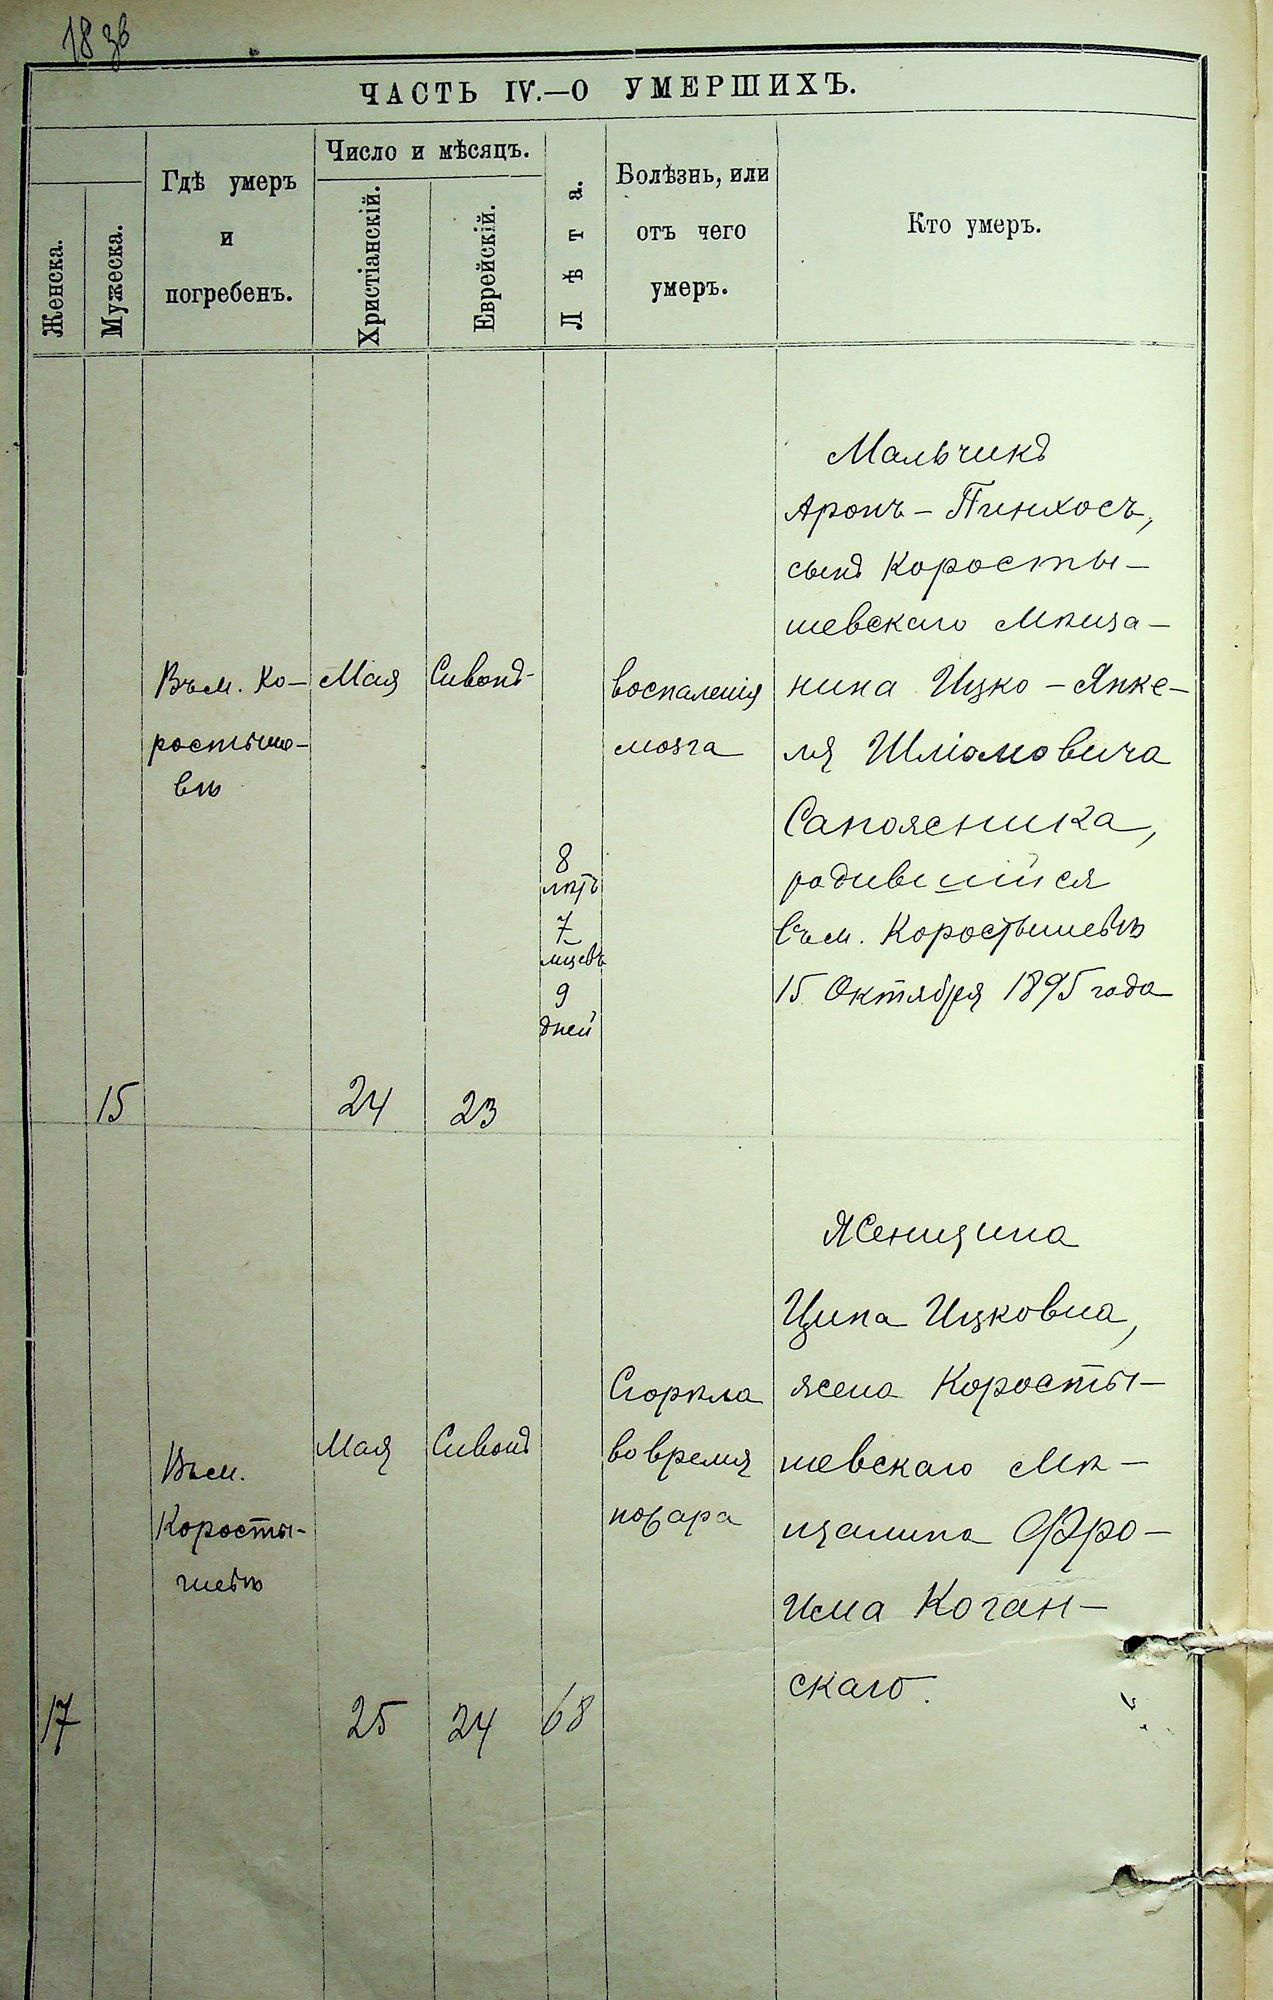 18 зв
ЧАСТЬ IV.—О УМЕРШИХЪ.
Женска.
Мужеска.
Гдѣ умеръ
и
погребенъ.
Число и мѣсяцъ.
Христіанскій.
Еврейскій.
Лѣта.
Болѣзнь, или
отъ чего
умеръ.
Кто умеръ.
15
Въ м. Ко-
ростыше-
вѣ
Мая
24
Сивонъ
23
8
лѣтъ
7
мцевъ
9
дней
воспаленія
мозга
Мальчикъ
Аронъ-Пинхосъ,
сынъ Коросты-
шевскаго Мѣща-
нина Ицко-Янке-
ля Шліомовича
Сапоясника,
родившійся
въ м. Коростышевѣ
15 Октября 1895 года
17
Въ м.
Коросты-
шевѣ
Мая
25
Сивонъ
24
68
Сгорѣла
во время
пожара
Женщина
Ципа Ицковна,
жена Коросты-
шевскаго Мѣ-
щанина Фро-
има Коган-
скаго.